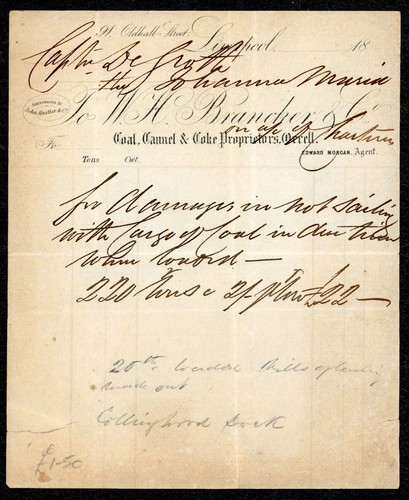 91 Oldhall Street,
Liverpool, 18
Captn De Groot
the Johanna Maria
To W. H. Brancker & Co
SUCCESSORS TO
John Hustler & Co.
on a/c of Charterers
Coal, Cannel & Coke Proprietors, Orrell.
EDWARD MORGAN, Agent.
Tons Cwt.
for damages in not sailing
with cargo of Coal in due time
when loaded —
220 Tons @ 2/- p Ton £22 —
20th loaded Bills of lading
made out
Collingwood Dock
£1-50